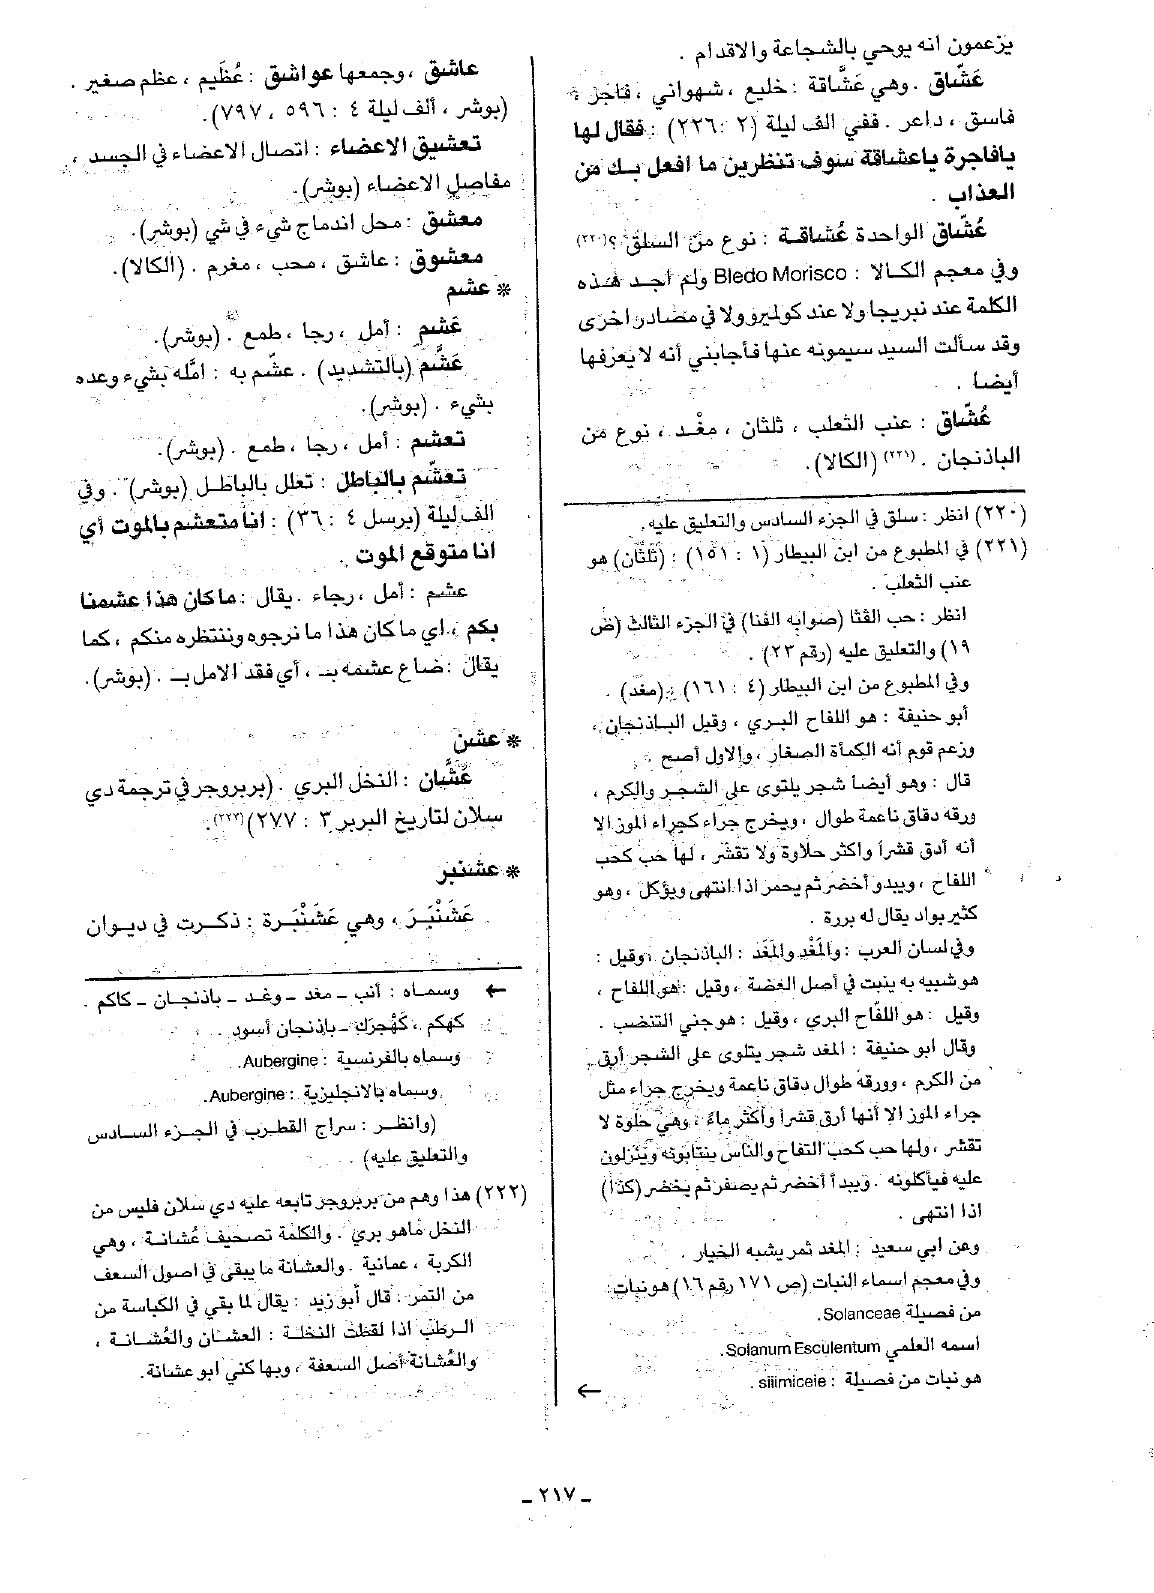 يزعمون أنه يوحي بالشجاعة والاقدام .
عَشّاق . وهي عَشَّاقة : خليع ، شهواني ، فاجر ،
فاسق ، داعر . ففي الف ليلة (٢ :٢٢٦) : فقال لها
يافاجرة ياعشاقة سوف تنظرين ما افعل بك من
العذاب .
عُشّاق الواحدة عُشاقة : نوع من السلق ؟(٢٢٠)
وفي معجم الكالا : Bledo Morisco ولم أجد هذه
الكلمة عند نبريجا ولا عند كولميرو ولا في مصادر اخرى
وقد سألت السيد سيمونه عنها فأجابني أنه لا يعرفها
أيضا .
عُشّاق : عنب الثعلب ، ثلثان ، مغْد ، نوع من
الباذنجان . (٢٢١) (الكالا).
(٢٢٠) انظر : سلق في الجزء السادس والتعليق عليه.
(٢٢١) في المطبوع من ابن البيطار (١ : ١٥١) : (ثَلثان) هو
عنب الثعلب .
انظر : حب القثا (صوابه الفنا) في الجزء الثالث (ص
١٩) والتعليق عليه (رقم ٢٣) .
وفي المطبوع من ابن البيطار (٤ : ١٦١) : (مغد) .
أبو حنيفة : هو اللفاح البري ، وقيل الباذنجان ،
وزعم قوم أنه الكمأة الصغار ، والاول أصح .
قال : وهو أيضا شجر يلتوي على الشجر والكرم ،
ورقه دقاق ناعمة طوال ، ويخرج جراء كجراء الموز الا
أنه أدق قشرا واكثر حلاوة ولا تقشر ، لها حب كحب
اللفاح ، ويبدو أخضر ثم يحمر اذا انتهى ويؤكل ، وهو
كثير بواد يقال له بررة .
وفي لسان العرب : والمَغْد والمَغَد : الباذنجان ، وقيل :
هو شبيه به ينبت في أصل العضة ، وقيل : هو اللفاح ،
وقيل : هو اللفّاح البري ، وقيل : هو جني التنضب .
وقال ابو حنيفة : المغد شجر يتلوى على الشجر أرق
من الكرم ، وورقه طوال دقاق ناعمة ويخرج جراء مثل
جراء الموز الا أنها أرق قشرا وأكثر ماءً ، وهي حلوة لا
تقشر ، ولها حب كحب التفاح والناس ينتابونه وينزلون
عليه فيأكلونه . ويبدأ أخضر ثم يصفر ثم يخضر (كذا)
اذا انتهى .
وعن ابي سعيد : المغد ثمر يشبه الخيار .
وفي معجم اسماء النبات (ص ١٧١ رقم ١٦) هو نبات
من فصيلة Solanceae.
اسمه العلمي Solanum Esculentum.
هو نبات من فصيلة : siiimiceie .
←
عاشق ، وجمعها عواشق : عُظَيم ، عظم صغير .
(بوشر ، ألف ليلة ٤ : ٥٩٦ ، ٧٩٧).
تعشيق الاعضاء : اتصال الاعضاء في الجسد ،
مفاصل الاعضاء (بوشر).
معشق : محل اندماج شيء في شي (بوشر).
معشوق : عاشق ، محب ، مغرم . (الكالا).
* عشم
عَشم : أمل ، رجا ، طمع . (بوشر).
عَشَّم (بالتشديد) . عشّم به : امّله بشيء وعده
بشيء . (بوشر).
تعشم : أمل ، رجا ، طمع . (بوشر).
تعشّم بالباطل : تعلل بالباطل (بوشر) . وفي
الف ليلة (برسل ٤ : ٣٦) : انا متعشم بالموت أي
انا متوقع الموت .
عشم : أمل ، رجاء . يقال : ما كان هذا عشمنا
بكم ، اي ما كان هذا ما نرجوه وننتظره منكم ، كما
يقال : ضاع عشمه بـ ، أي فقد الامل بـ . (بوشر).
* عشن
عُشَّان : النخل البري . (بربروجر في ترجمة دي
سلان لتاريخ البربر ٣ : ٢٧٧)(٢٢٢).
* عشنبر
عَشَنْبَرَ ، وهي عَشَنْبَرة : ذكرت في ديوان
← وسماه : أنب ـ مغد ـ وغد ـ باذنجان ـ كاكم .
كهكم ، كَهْجَرَك ـ باذنجان أسود .
وسماه بالفرنسية : Aubergine.
وسماه بالانجليزية : Aubergine.
(وانظر : سراج القطرب في الجزء السادس
والتعليق عليه) .
(٢٢٢) هذا وهم من بربروجر تابعه عليه دي سلان فليس من
النخل ماهو بري . والكلمة تصحيف عُشانة ، وهي
الكربة ، عمانية . والعشانة ما يبقى في اصول السعف
من التمر . قال أبو زيد : يقال لما بقي في الكباسة من
الرطب اذا لقطت النخلة : العشان والعُشانة ،
والعُشانة أصل السعفة ، وبها كني ابو عشانة.
ـ ٢١٧ ـ